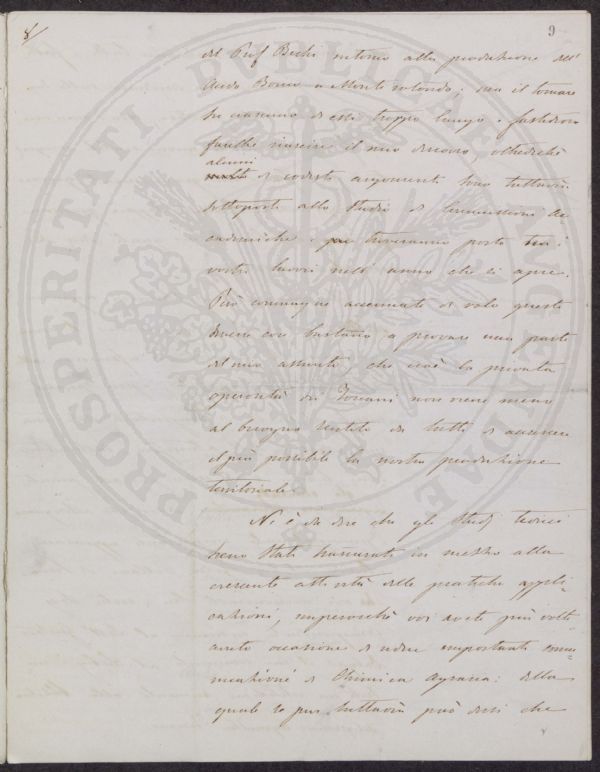 8/
9
del Prof Bechi intorno alla produzione dell'
Acido Borico a Monte rotondo; ma il tornare
su ciascuno di essi troppo lungo e fastidioso
farebbe riuscire il mio discorso, oltredichè
alcuni
di codesti argomenti sono tuttavia
sottoposti allo studio di Commissioni Ac-
cademiche e troveranno posto tra i
vostri lavori nell'anno che si apre.
Però comunque accennate di volo queste
diverse cose bastano a provare una parte
del mio assunto, che cioè la privata
operosità dei Toscani non viene meno
al bisogno sentito da tutti di accrescere
il più possibile la nostra produzione
territoriale.
Nè è da dire che gli Studj teorici
sieno stati trascurati in mezzo alla
crescente attività delle pratiche appli-
cazioni, imperocchè voi avete più volte
avuto occasione di udire importanti comu-
nicazioni di Chimica Agraria: della
quale se pur tuttavia può dirsi che
PROSPERITATI PUBLICAE AUGENDAE